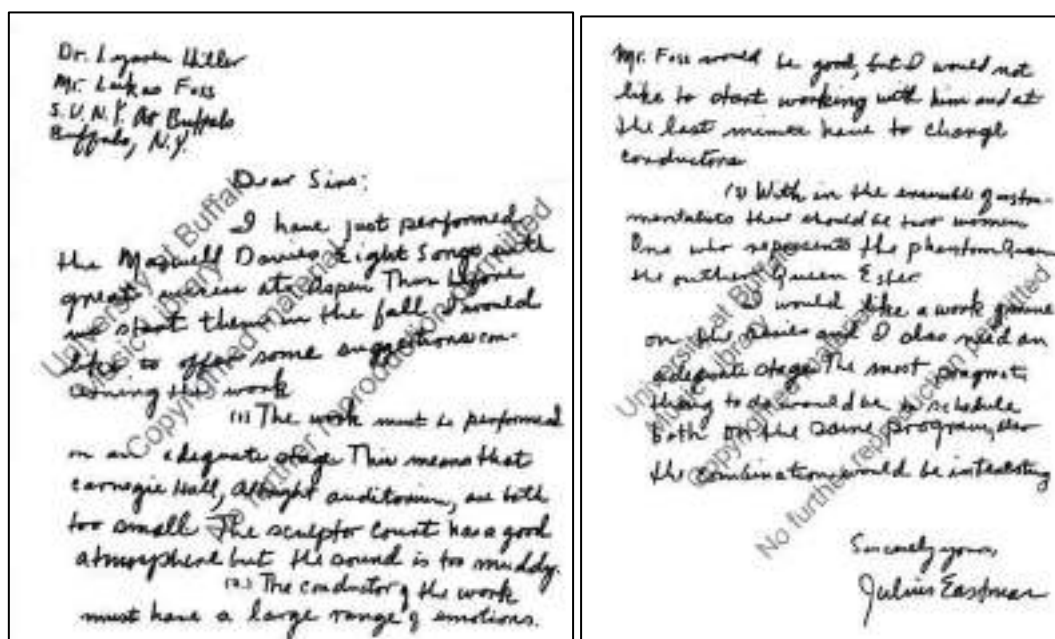 Dr. Lejaren Hiller
Mr. Lukas Foss
S.U.N.Y. At Buffalo
Buffalo, N.Y.
Dear Sirs:
I have just performed
the Maxwell Davies Eight Songs with
great success at Aspen
we start them in the fall I would
like to offer some suggestions con-
cerning the work
(1) The work must be performed
on an adequate stage This means that
carnegie Hall, Albright auditorium, are both
too small The sculptor court has a good
atmosphere but the sound is too muddy.
(2.) The conductor of the work
must have a large range of emotions.
Mr. Foss would be good, but I would not
like to start working with him and at
the last minute have to change
conductors
(3) With in the ensemble of instru-
mentalists there should be two women
One who represents the phantom Queen
the other Queen Ester
I would like a work
on the series and I also need an
adequate stage The most
thing to do would be to schedule
both on the same program, also
the combination would be interesting
Sincerely yours,
Julius Eastman
University at Buffalo
Music Library
Copyrighted material
No further reproduction permitted
University at Buffalo
Music Library
Copyrighted material
No further reproduction permitted